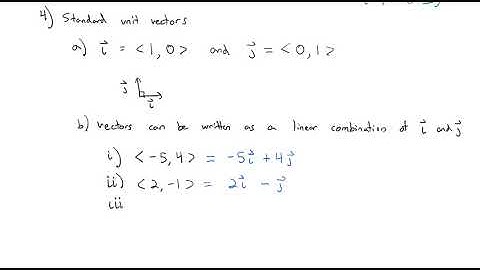 4) Standard unit vectors
a) i⃗ = < 1, 0 > and j⃗ = < 0, 1 >
j⃗
i⃗
b) vectors can be written as a linear combination of i⃗ and j⃗
i) < -5, 4 > = -5i⃗ + 4j⃗
ii) < 2, -1 > = 2i⃗ - j⃗
iii